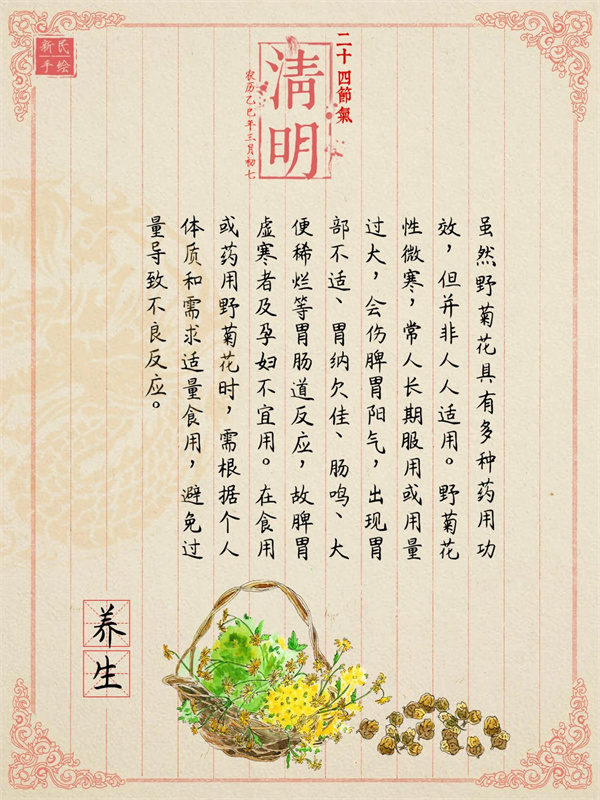 新民
手绘
二十四節氣
清明
农历乙巳年三月初七
虽然野菊花具有多种药用功
效，但并非人人适用。野菊花
性微寒，常人长期服用或用量
过大，会伤脾胃阳气，出现胃
部不适、胃纳欠佳、肠鸣、大
便稀烂等胃肠道反应，故脾胃
虚寒者及孕妇不宜用。在食用
或药用野菊花时，需根据个人
体质和需求适量食用，避免过
量导致不良反应。
养生